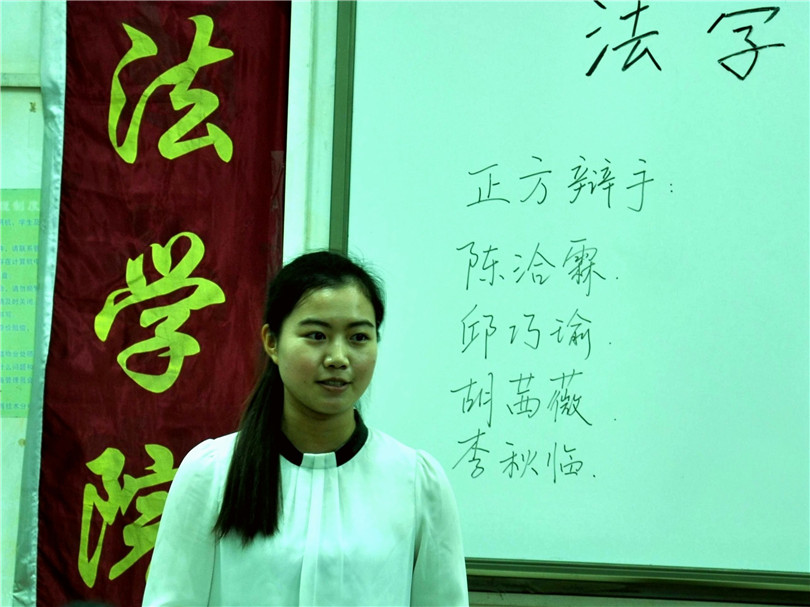 法学院
法学
正方辩手：
陈洽霖.
邱巧瑜.
胡茜薇.
李秋临.